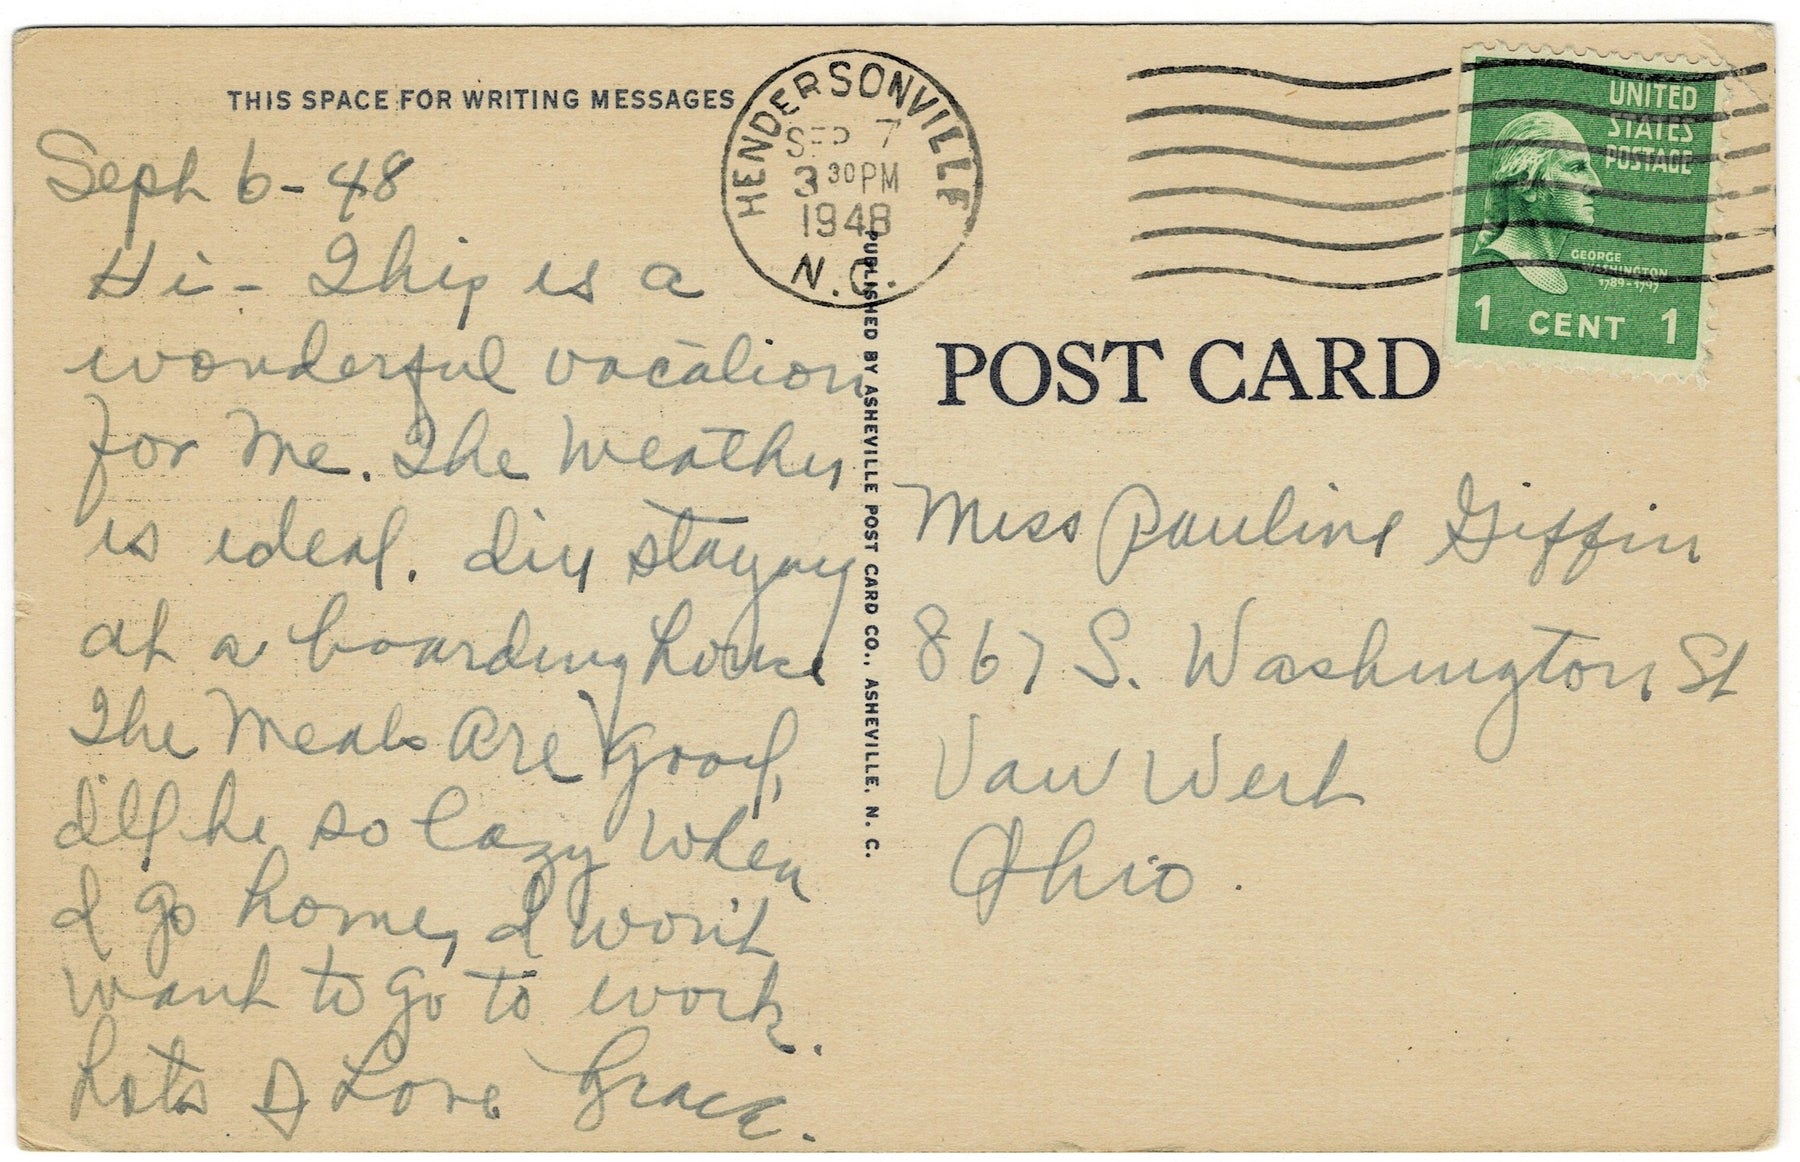 THIS SPACE FOR WRITING MESSAGES
Sept 6-48
Hi - This is a
wonderful vacation
for me. The weather
is ideal. I'm staying
at a boarding house
The meals are good,
I'll be so lazy when
I go home, I won't
want to go to work.
Lots of Love Grace.
HENDERSONVILLE
SEP 7
3 30 PM
1948
N.C.
PUBLISHED BY ASHEVILLE POST CARD CO., ASHEVILLE, N. C.
UNITED
STATES
POSTAGE
GEORGE
WASHINGTON
1789-1797
1 CENT 1
POST CARD
Miss Pauline Giffin
867 S. Washington St
Van Wert
Ohio.